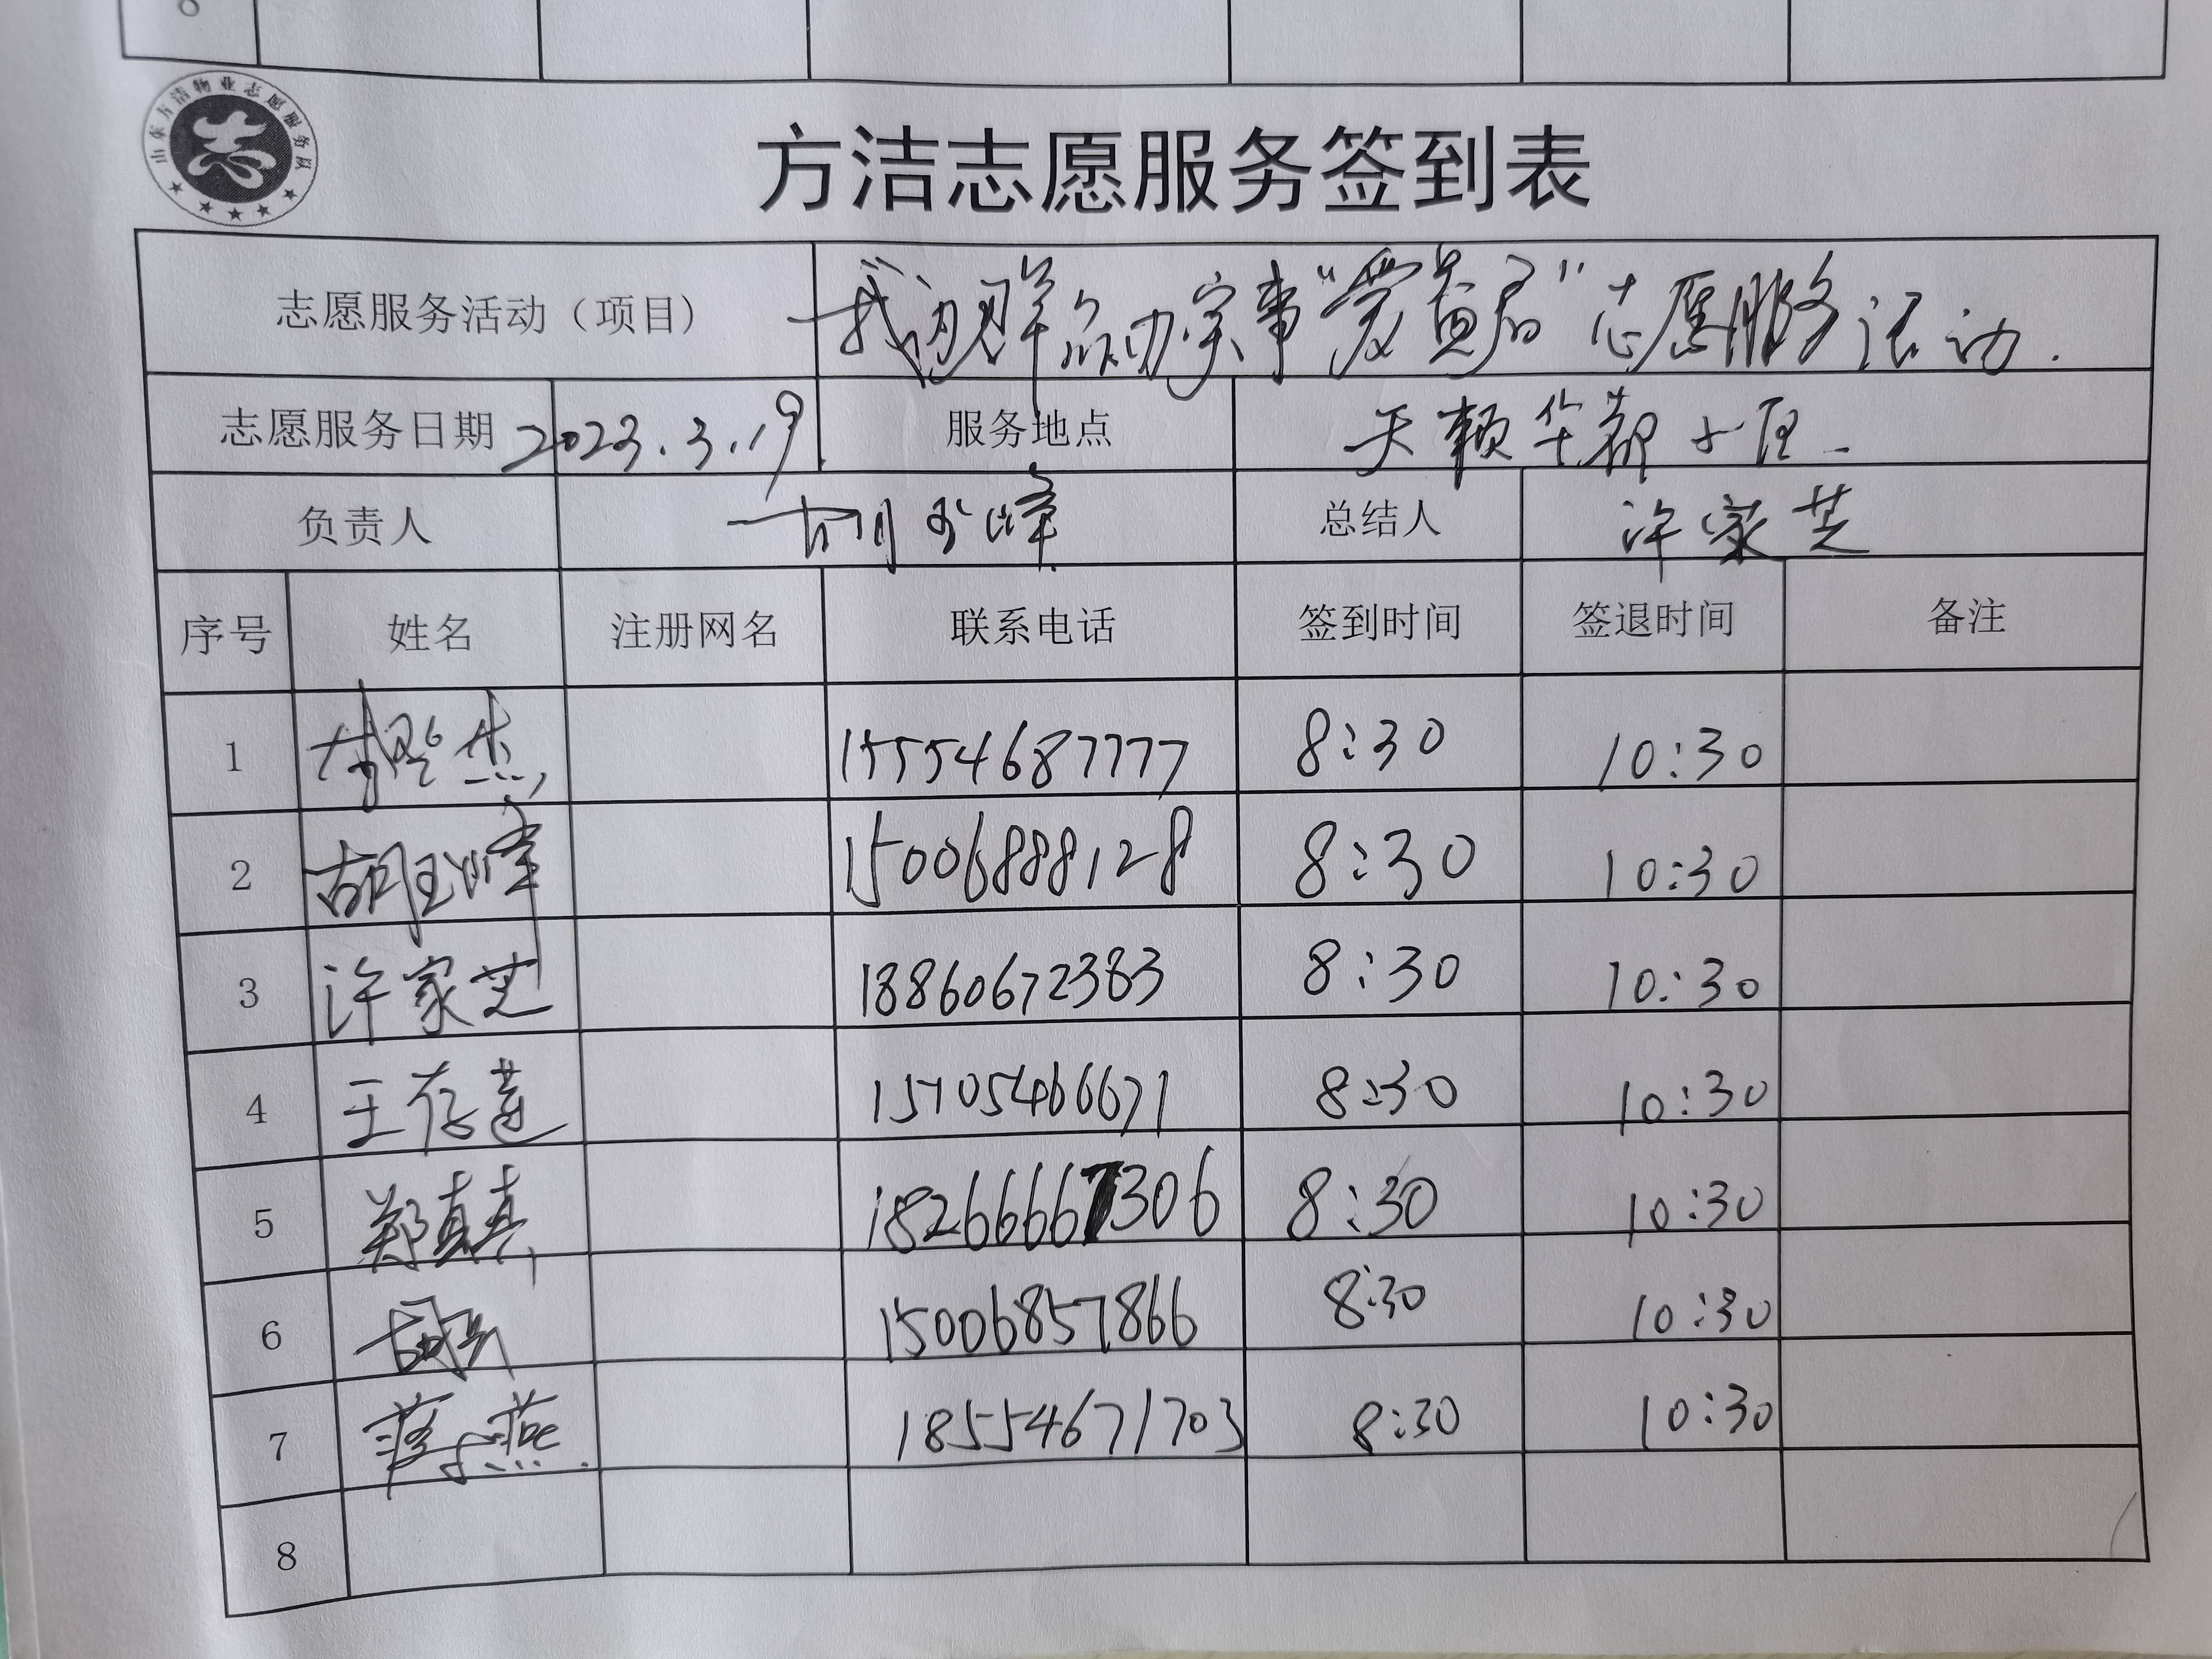 山东方洁物业志愿服务队
志
方洁志愿服务签到表
志愿服务活动（项目） 我为群众办实事“爱益居”志愿服务活动.
志愿服务日期 2023.3.19. 服务地点 天赖华都小区
负责人 胡玉峰 总结人 许家芝
序号 姓名 注册网名 联系电话 签到时间 签退时间 备注
1 15554687777 8:30 10:30
2 胡玉峰 15006888128 8:30 10:30
3 许家芝 18860672383 8:30 10:30
4 王存莲 15705466671 8:30 10:30
5 郑真真 18266667306 8:30 10:30
6 15006857866 8:30 10:30
7 燕 18554671703 8:30 10:30
8